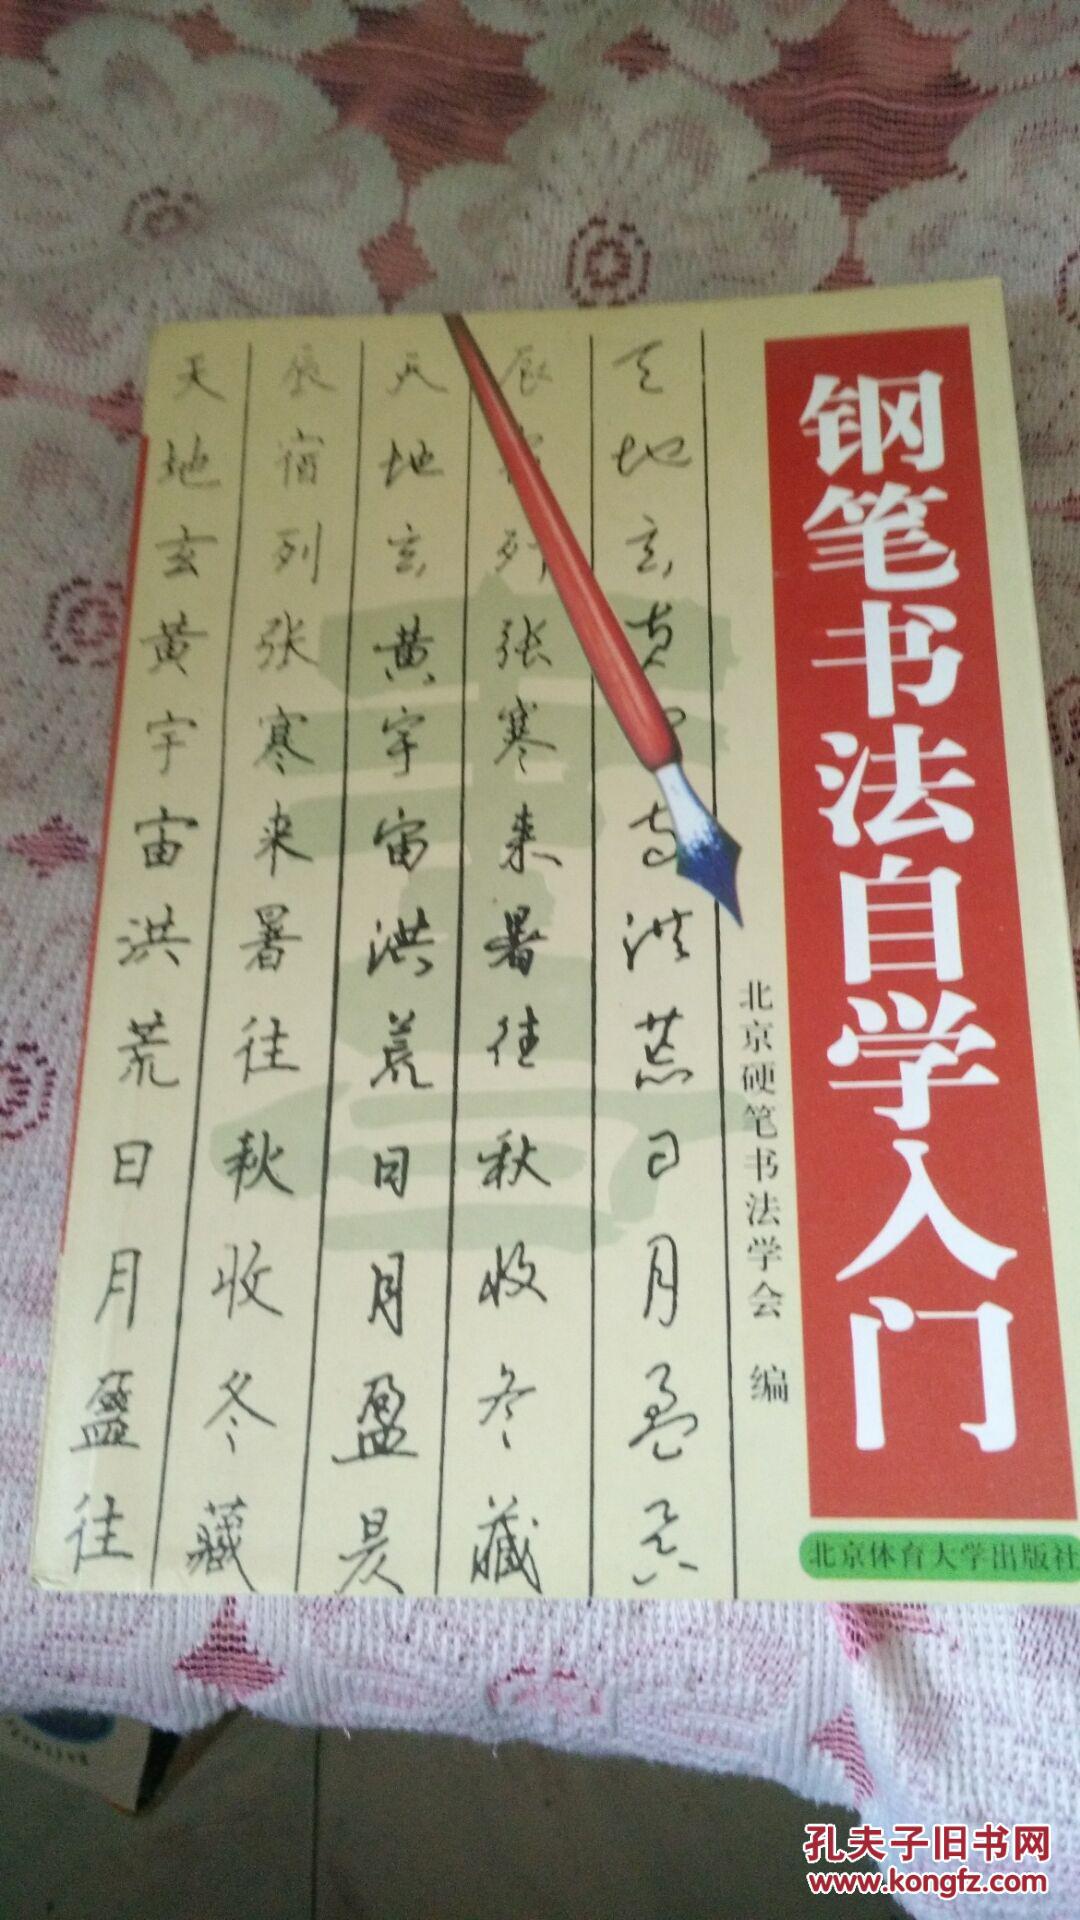 钢笔书法自学入门
北京硬笔书法学会 编
北京体育大学出版社
天地玄黄宇宙洪荒日月盈往
辰宿列张寒来暑往秋收冬藏
天地玄黄宇宙洪荒日月盈昃
辰宿列张寒来暑往秋收冬藏
天地玄黄宙洪荒日月盈昃
孔夫子旧书网
www.kongfz.com